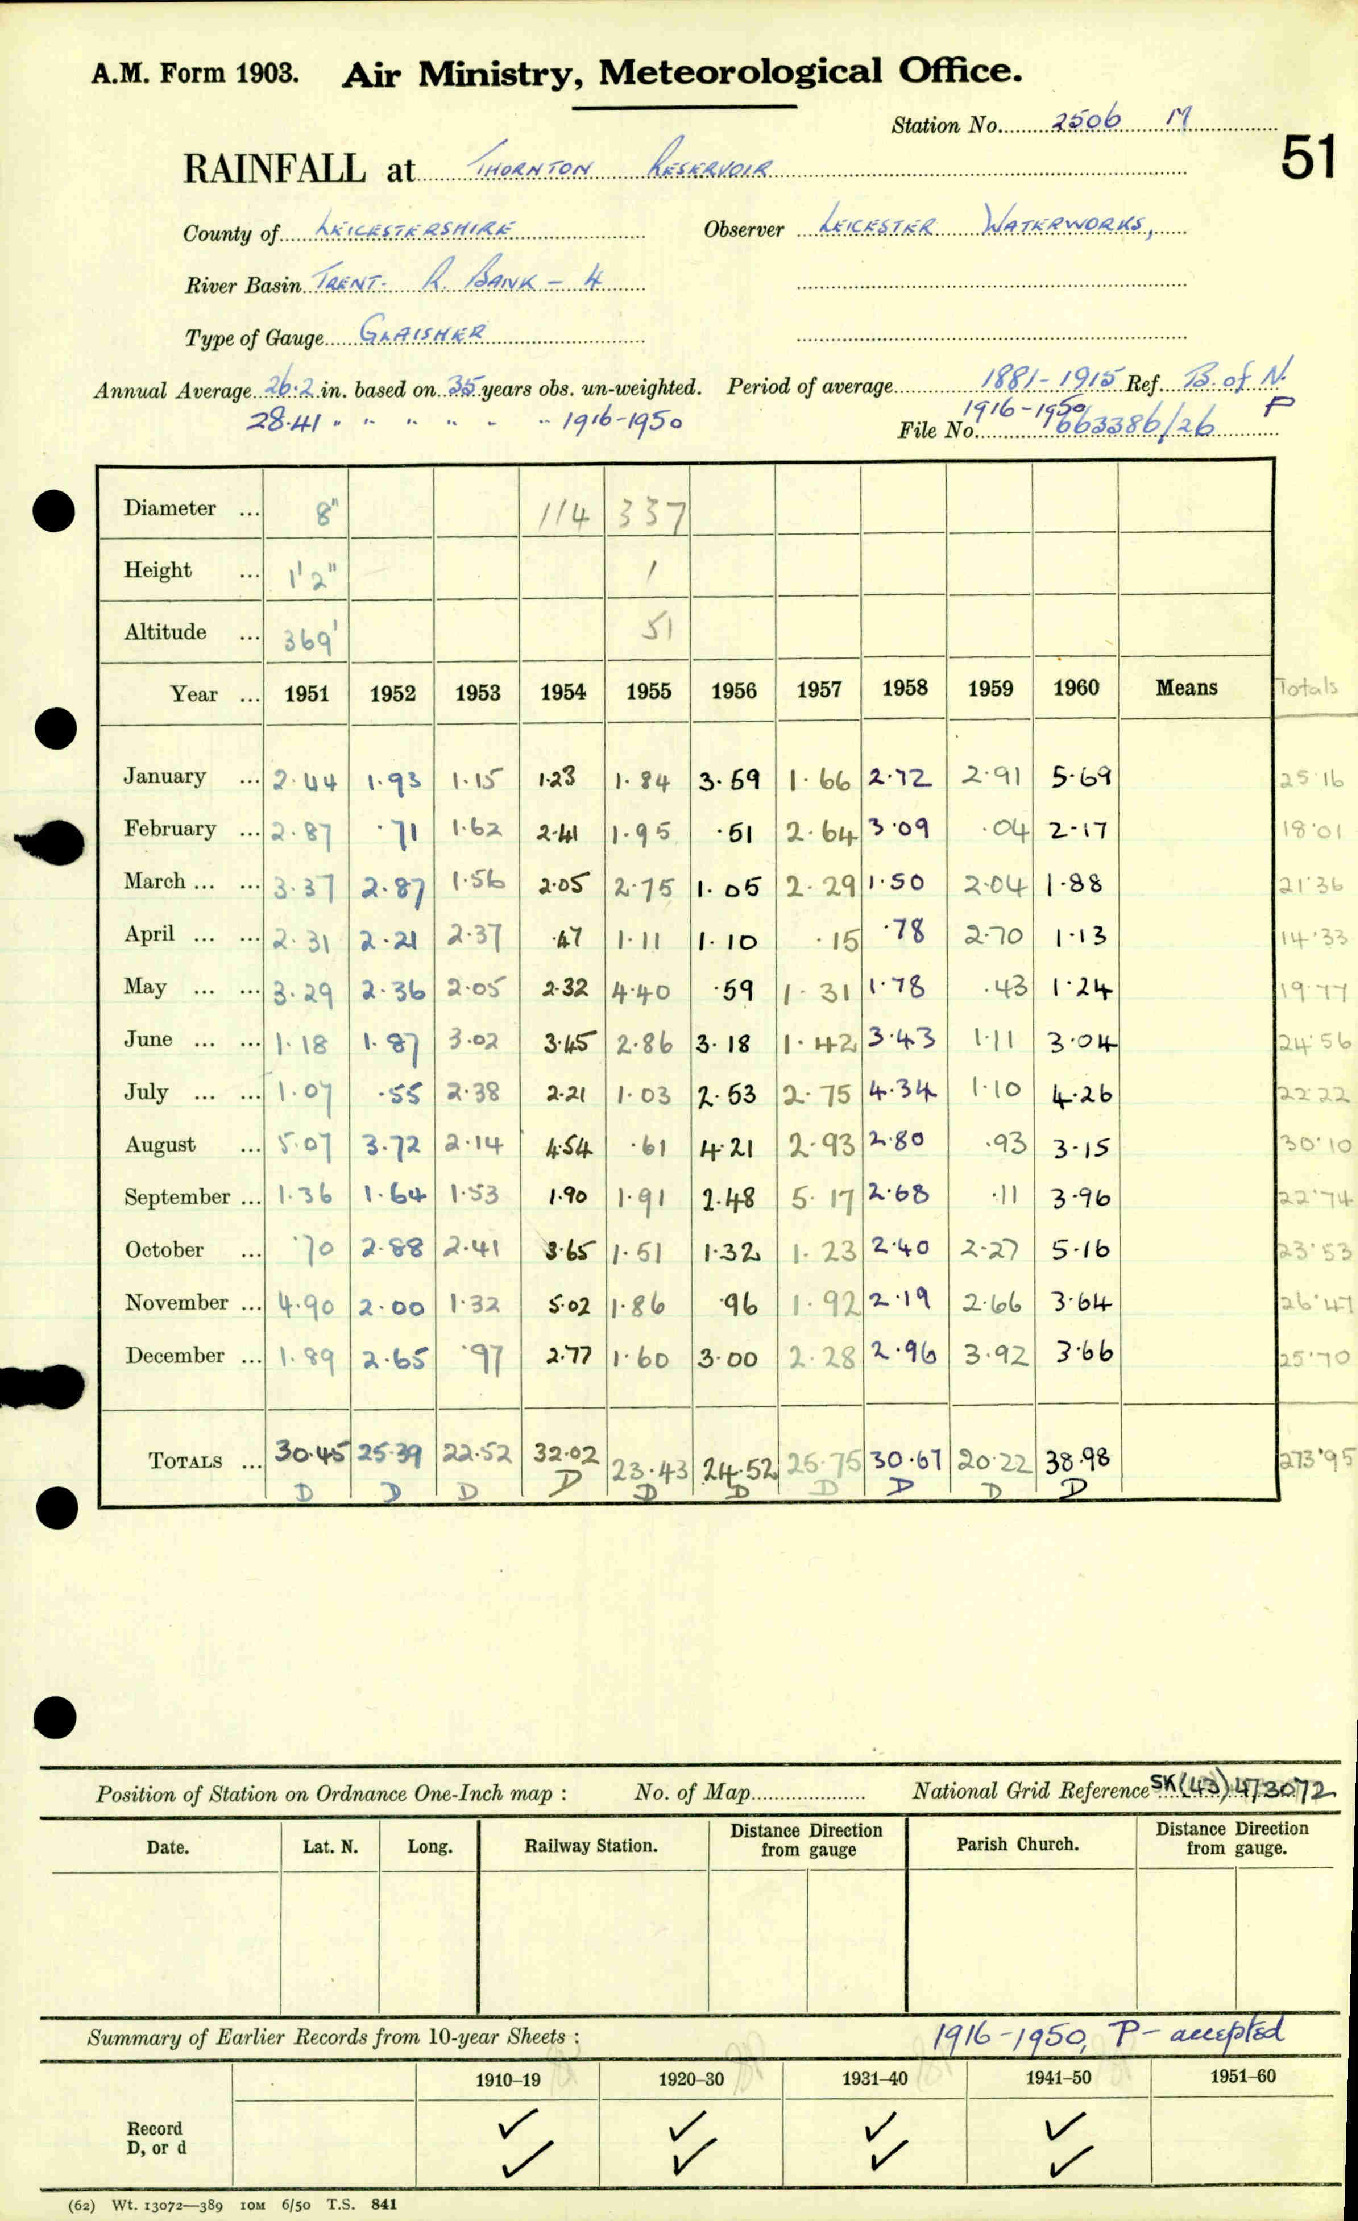 A.M. Form 1903. Air Ministry, Meteorological Office.
Station No. 2506 M
51
RAINFALL at THORNTON RESERVOIR
County of LEICESTERSHIRE Observer LEICESTER WATERWORKS,
River Basin TRENT- R. BANK - 4
Type of Gauge GLAISHER
Annual Average 26.2 in. based on 35 years obs. un-weighted. Period of average 1881-1915 Ref. B. of N.
28.41 " " " " " " 1916-1950 1916-1950 P
File No. 663386/26
Diameter ... 8" 114 337
Height ... 1'2" 1
Altitude ... 369' 51
Year ... 1951 1952 1953 1954 1955 1956 1957 1958 1959 1960 Means Totals
January ... 2.44 1.93 1.15 1.23 1.84 3.59 1.66 2.72 2.91 5.69 25.16
February ... 2.87 .71 1.62 2.41 1.95 .51 2.64 3.09 .04 2.17 18.01
March ... ... 3.37 2.87 1.56 2.05 2.75 1.05 2.29 1.50 2.04 1.88 21.36
April ... ... 2.31 2.21 2.37 .47 1.11 1.10 .15 .78 2.70 1.13 14.33
May ... ... 3.29 2.36 2.05 2.32 4.40 .59 1.31 1.78 .43 1.24 19.77
June ... ... 1.18 1.87 3.02 3.45 2.86 3.18 1.42 3.43 1.11 3.04 24.56
July ... ... 1.07 .55 2.38 2.21 1.03 2.53 2.75 4.34 1.10 4.26 22.22
August ... 5.07 3.72 2.14 4.54 .61 4.21 2.93 2.80 .93 3.15 30.10
September ... 1.36 1.64 1.53 1.90 1.91 2.48 5.17 2.68 .11 3.96 22.74
October ... .70 2.88 2.41 3.65 1.51 1.32 1.23 2.40 2.27 5.16 23.53
November ... 4.90 2.00 1.32 5.02 1.86 .96 1.92 2.19 2.66 3.64 26.47
December ... 1.89 2.65 .97 2.77 1.60 3.00 2.28 2.96 3.92 3.66 25.70
TOTALS ... 30.45 25.39 22.52 32.02 23.43 24.52 25.75 30.67 20.22 38.98 273.95
D D D D D D D D D D
Position of Station on Ordnance One-Inch map : No. of Map National Grid Reference SK(43)473072
Date. Lat. N. Long. Railway Station. Distance Direction from gauge Parish Church. Distance Direction from gauge.
Summary of Earlier Records from 10-year Sheets : 1916-1950, P- accepted
1910–19 1920–30 1931–40 1941–50 1951–60
Record ✓ ✓ ✓ ✓
D, or d ✓ ✓ ✓ ✓
(62) Wt. 13072—389 10M 6/50 T.S. 841